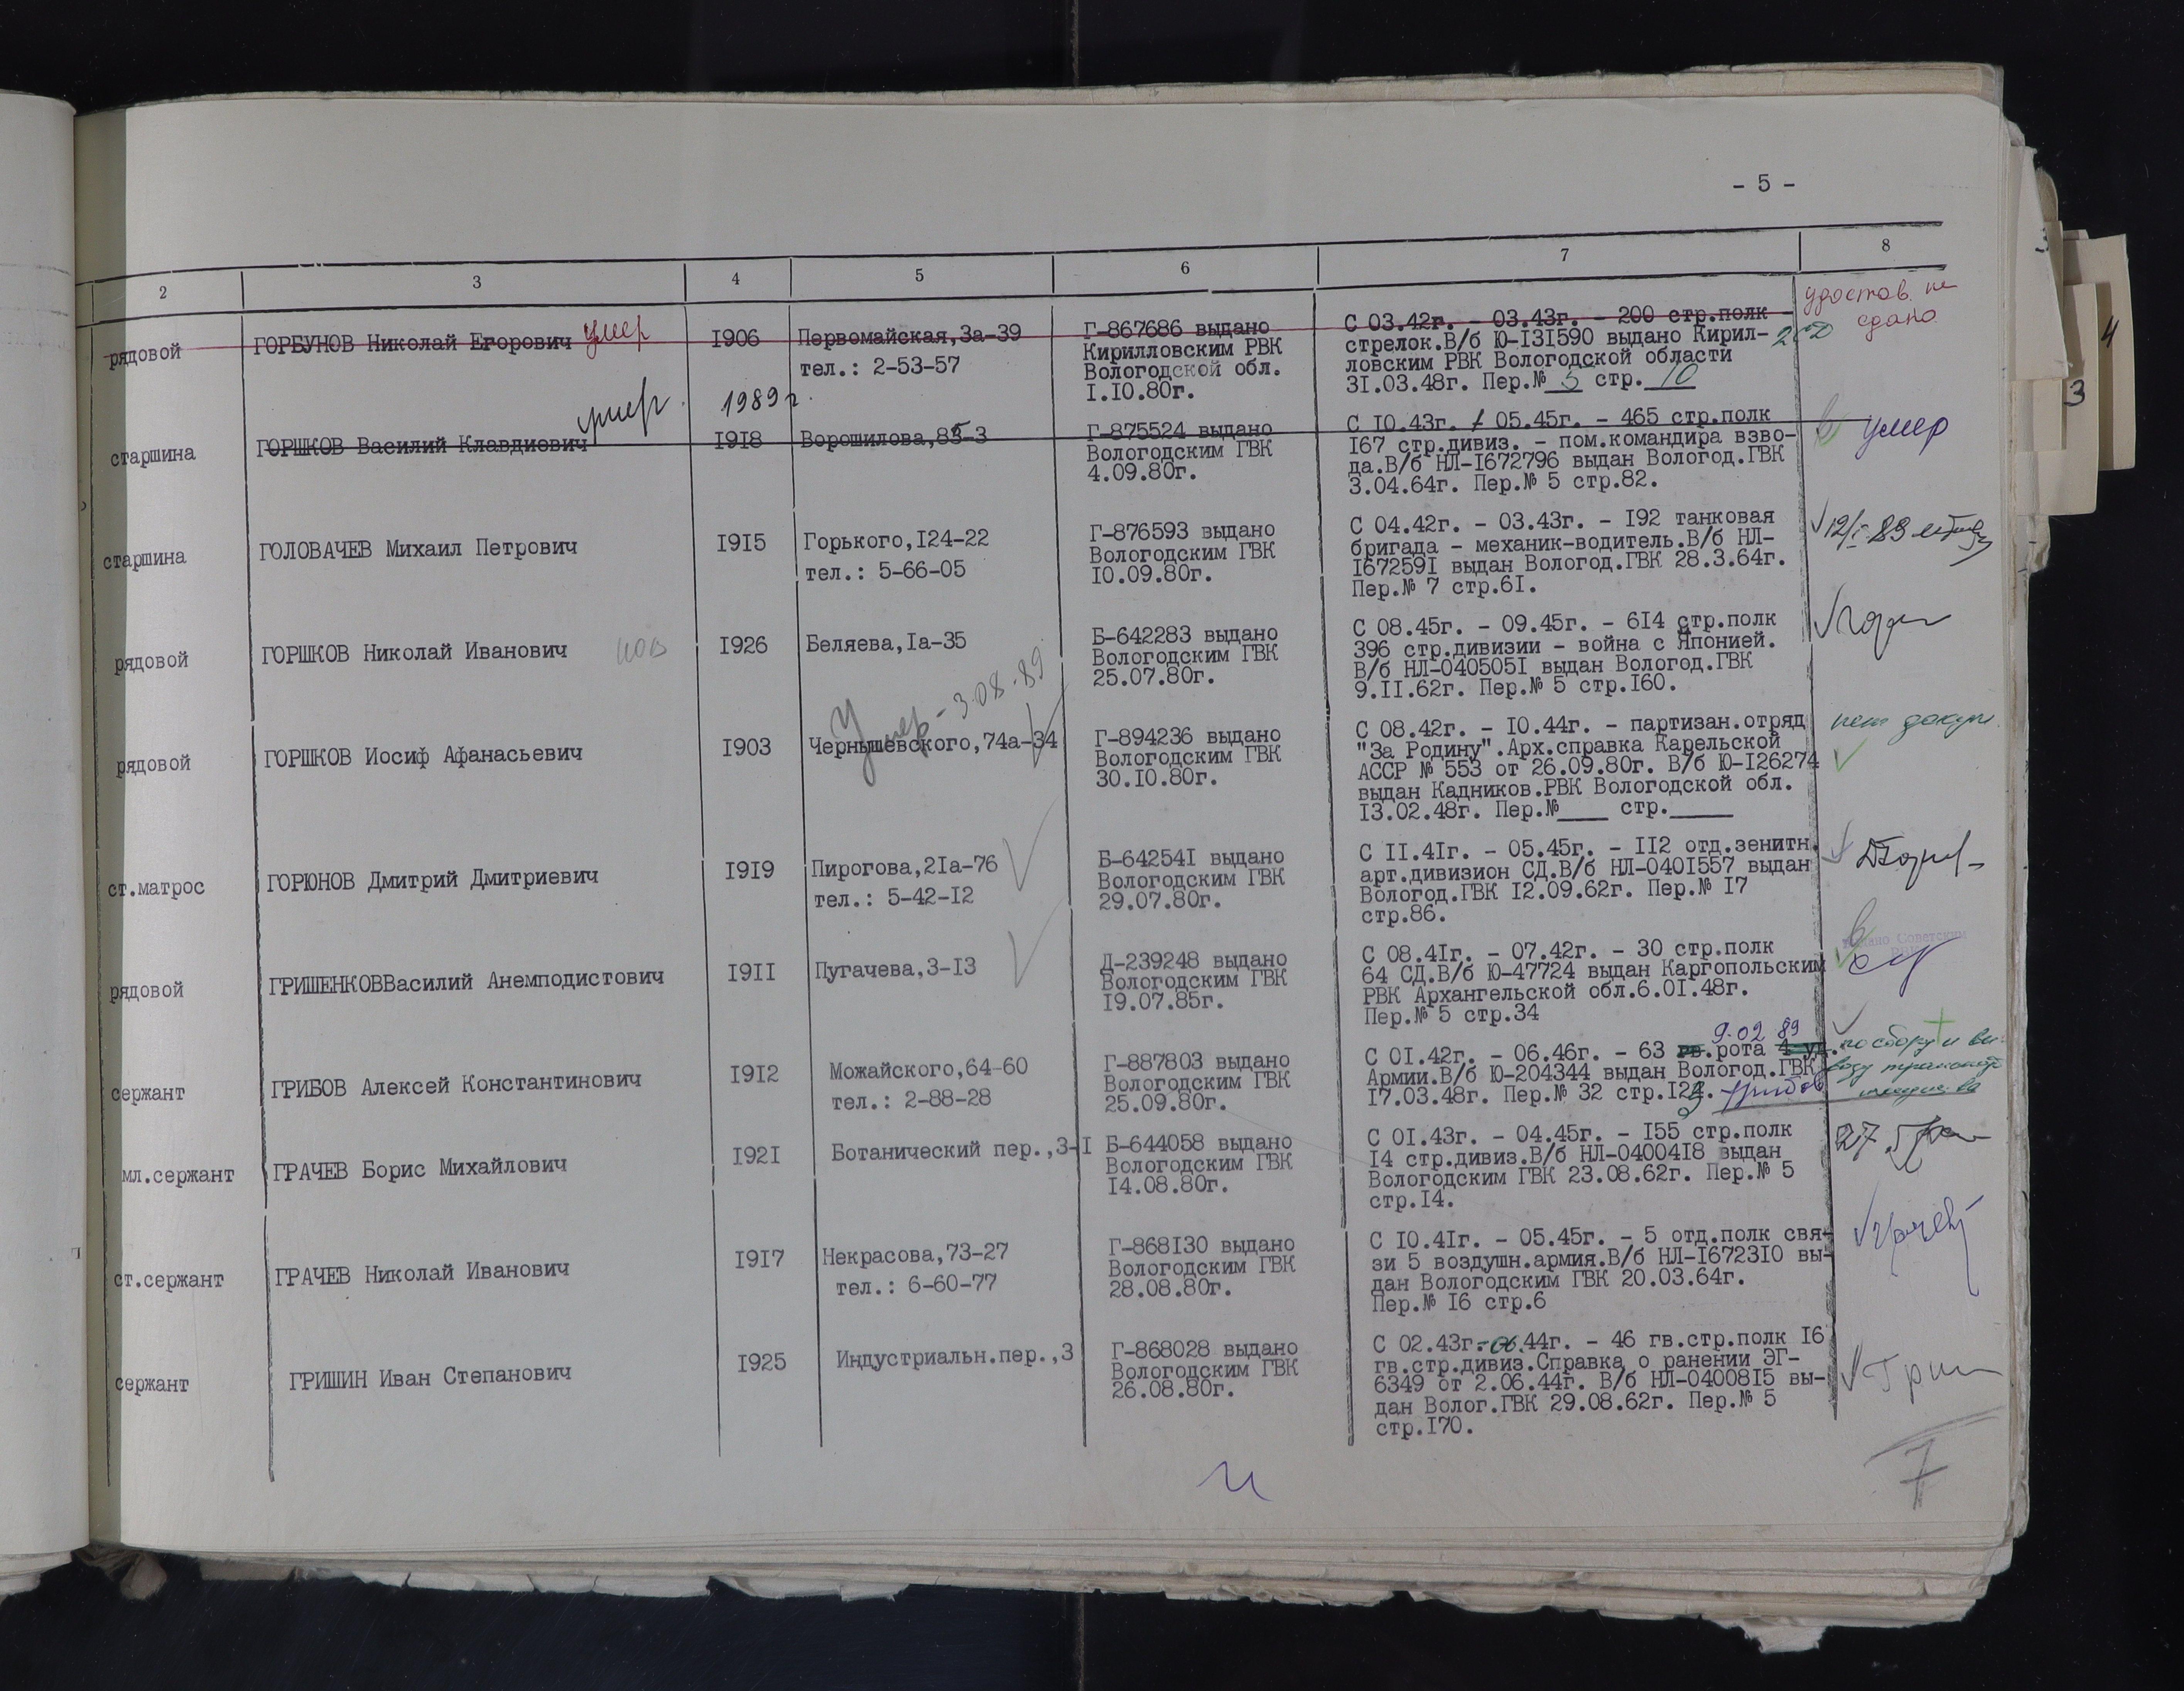 - 5 -
2 3 4 5 6 7 8
удостов. не
сдано
рядовой ГОРБУНОВ Николай Егорович умер 1906 Первомайская,3а-39
тел.: 2-53-57
Г-867686 выдано
Кирилловским РВК
Вологодской обл.
1.10.80г.
С 03.42г. - 03.43г. - 200 стр.полк -
стрелок.В/б Ю-131590 выдано Кирил-
ловским РВК Вологодской области
31.03.48г. Пер.№ 5 стр. 10
умер 1989г.
старшина ГОРШКОВ Василий Клавдиевич 1918 Ворошилова,85-3
Г-875524 выдано
Вологодским ГВК
4.09.80г.
С 10.43г. - 05.45г. - 465 стр.полк
167 стр.дивиз. - пом.командира взво-
да.В/б НЛ-1672796 выдан Вологод.ГВК
3.04.64г. Пер.№ 5 стр.82.
умер
старшина ГОЛОВАЧЕВ Михаил Петрович 1915 Горького,124-22
тел.: 5-66-05
Г-876593 выдано
Вологодским ГВК
10.09.80г.
С 04.42г. - 03.43г. - 192 танковая
бригада - механик-водитель.В/б НЛ-
1672591 выдан Вологод.ГВК 28.3.64г.
Пер.№ 7 стр.61.
12/I-89
рядовой ГОРШКОВ Николай Иванович 1926 Беляева,1а-35
Б-642283 выдано
Вологодским ГВК
25.07.80г.
С 08.45г. - 09.45г. - 614 стр.полк
396 стр.дивизии - война с Японией.
В/б НЛ-0405051 выдан Вологод.ГВК
9.11.62г. Пер.№ 5 стр.160.
Умер - 3.08.89
рядовой ГОРШКОВ Иосиф Афанасьевич 1903 Чернышевского,74а-34
Г-894236 выдано
Вологодским ГВК
30.10.80г.
С 08.42г. - 10.44г. - партизан.отряд
"За Родину".Арх.справка Карельской
АССР № 553 от 26.09.80г. В/б Ю-126274
выдан Кадников.РВК Вологодской обл.
13.02.48г. Пер.№____ стр._____
нет докум.
ст.матрос ГОРЮНОВ Дмитрий Дмитриевич 1919 Пирогова,21а-76
тел.: 5-42-12
Б-642541 выдано
Вологодским ГВК
29.07.80г.
С 11.41г. - 05.45г. - 112 отд.зенитн.
арт.дивизион СД.В/б НЛ-0401557 выдан
Вологод.ГВК 12.09.62г. Пер.№ 17
стр.86.
рядовой ГРИШЕНКОВВасилий Анемподистович 1911 Пугачева,3-13
Д-239248 выдано
Вологодским ГВК
19.07.85г.
С 08.41г. - 07.42г. - 30 стр.полк
64 СД.В/б Ю-47724 выдан Каргопольским
РВК Архангельской обл.6.01.48г.
Пер.№ 5 стр.34
9.02 89
сержант ГРИБОВ Алексей Константинович 1912 Можайского,64-60
тел.: 2-88-28
Г-887803 выдано
Вологодским ГВК
25.09.80г.
С 01.42г. - 06.46г. - 63 гв.рота 4 уд.
Армии.В/б Ю-204344 выдан Вологод.ГВК
17.03.48г. Пер.№ 32 стр.123. Грибов
по сбору и вы-
возу
имущества
мл.сержант ГРАЧЕВ Борис Михайлович 1921 Ботанический пер.,3-1
Б-644058 выдано
Вологодским ГВК
14.08.80г.
С 01.43г. - 04.45г. - 155 стр.полк
14 стр.дивиз.В/б НЛ-0400418 выдан
Вологодским ГВК 23.08.62г. Пер.№ 5
стр.14.
ст.сержант ГРАЧЕВ Николай Иванович 1917 Некрасова,73-27
тел.: 6-60-77
Г-868130 выдано
Вологодским ГВК
28.08.80г.
С 10.41г. - 05.45г. - 5 отд.полк свя-
зи 5 воздушн.армия.В/б НЛ-1672310 вы-
дан Вологодским ГВК 20.03.64г.
Пер.№ 16 стр.6
сержант ГРИШИН Иван Степанович 1925 Индустриальн.пер.,3
Г-868028 выдано
Вологодским ГВК
26.08.80г.
С 02.43г.-06.44г. - 46 гв.стр.полк 16
гв.стр.дивиз.Справка о ранении ЭГ-
6349 от 2.06.44г. В/б НЛ-0400815 вы-
дан Волог.ГВК 29.08.62г. Пер.№ 5
стр.170.
7
4
3